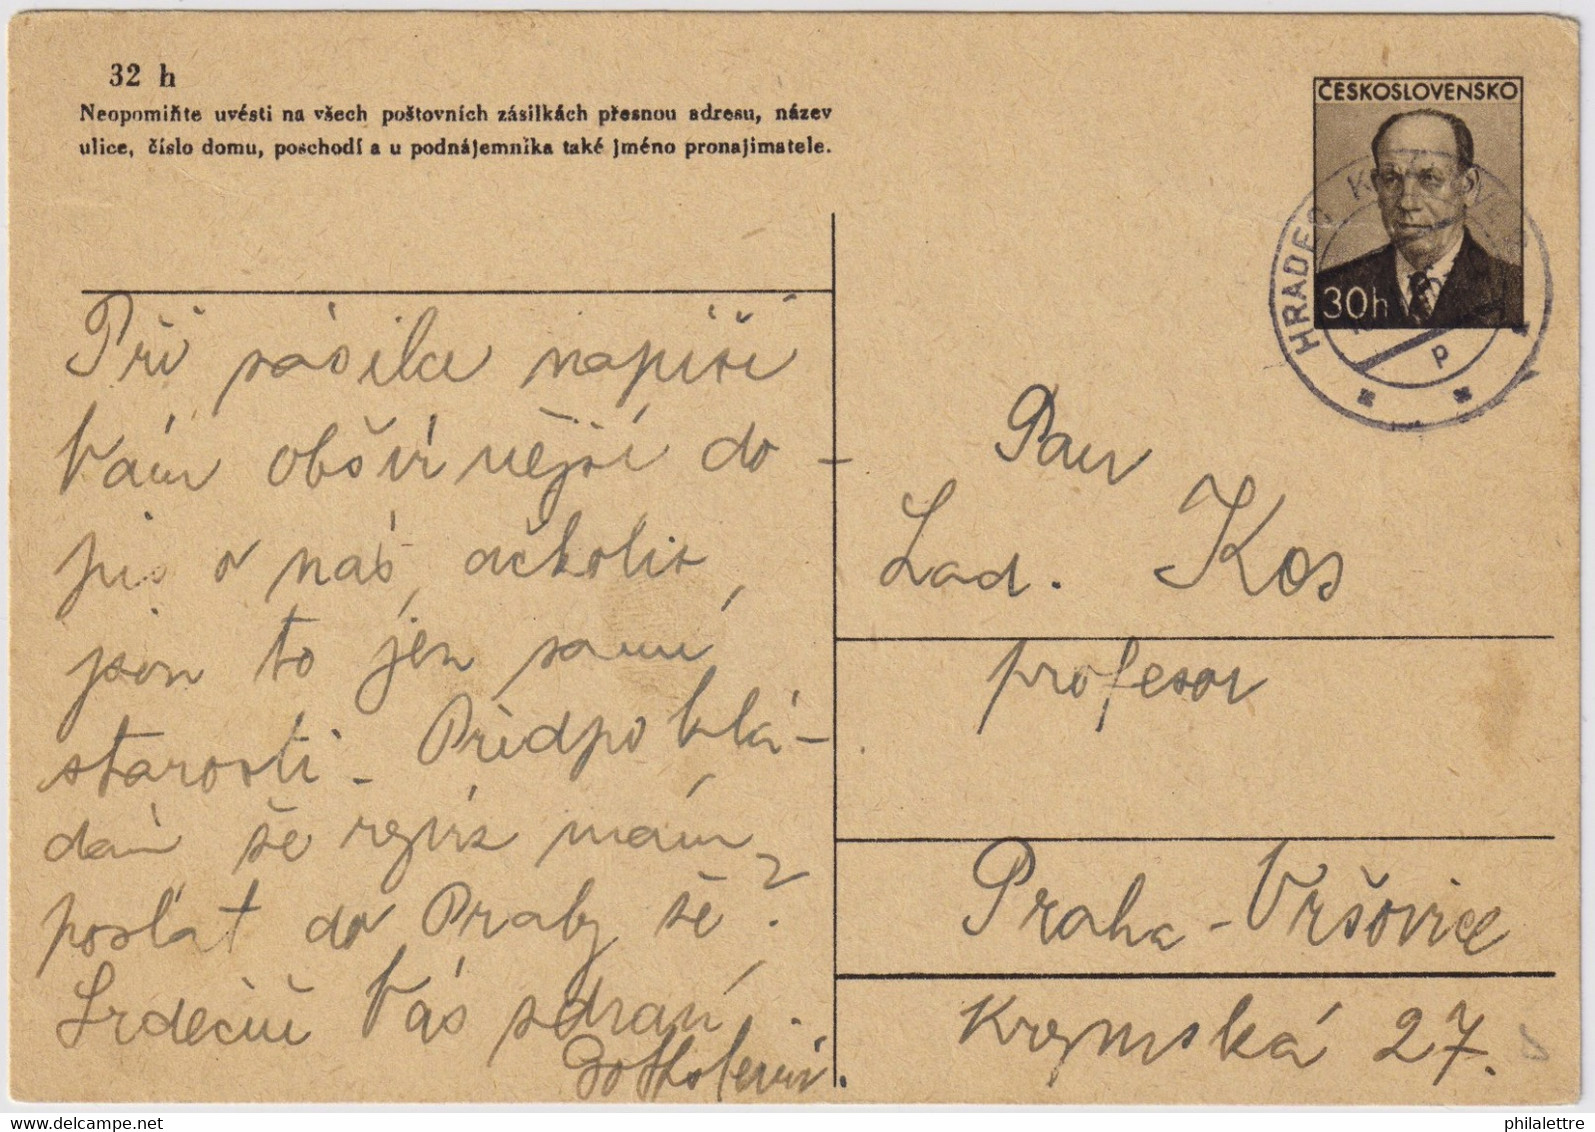 32 h
Neopomiňte uvésti na všech poštovních zásilkách přesnou adresu, název
ulice, číslo domu, poschodí a u podnájemníka také jméno pronajimatele.
ČESKOSLOVENSKO
30h
HRADEC KRÁLOVÉ
p
Při zásilce napíši
Vám obšírnější do-
pis o nás, ačkoliv
jsou to jen samé
starosti. Předpoklá-
dám že rýži mám
poslat do Prahy že?
Srdečně Vás zdraví
Pan
Lad. Kos
profesor
Praha-Vršovice
Krymská 27.
philalettre